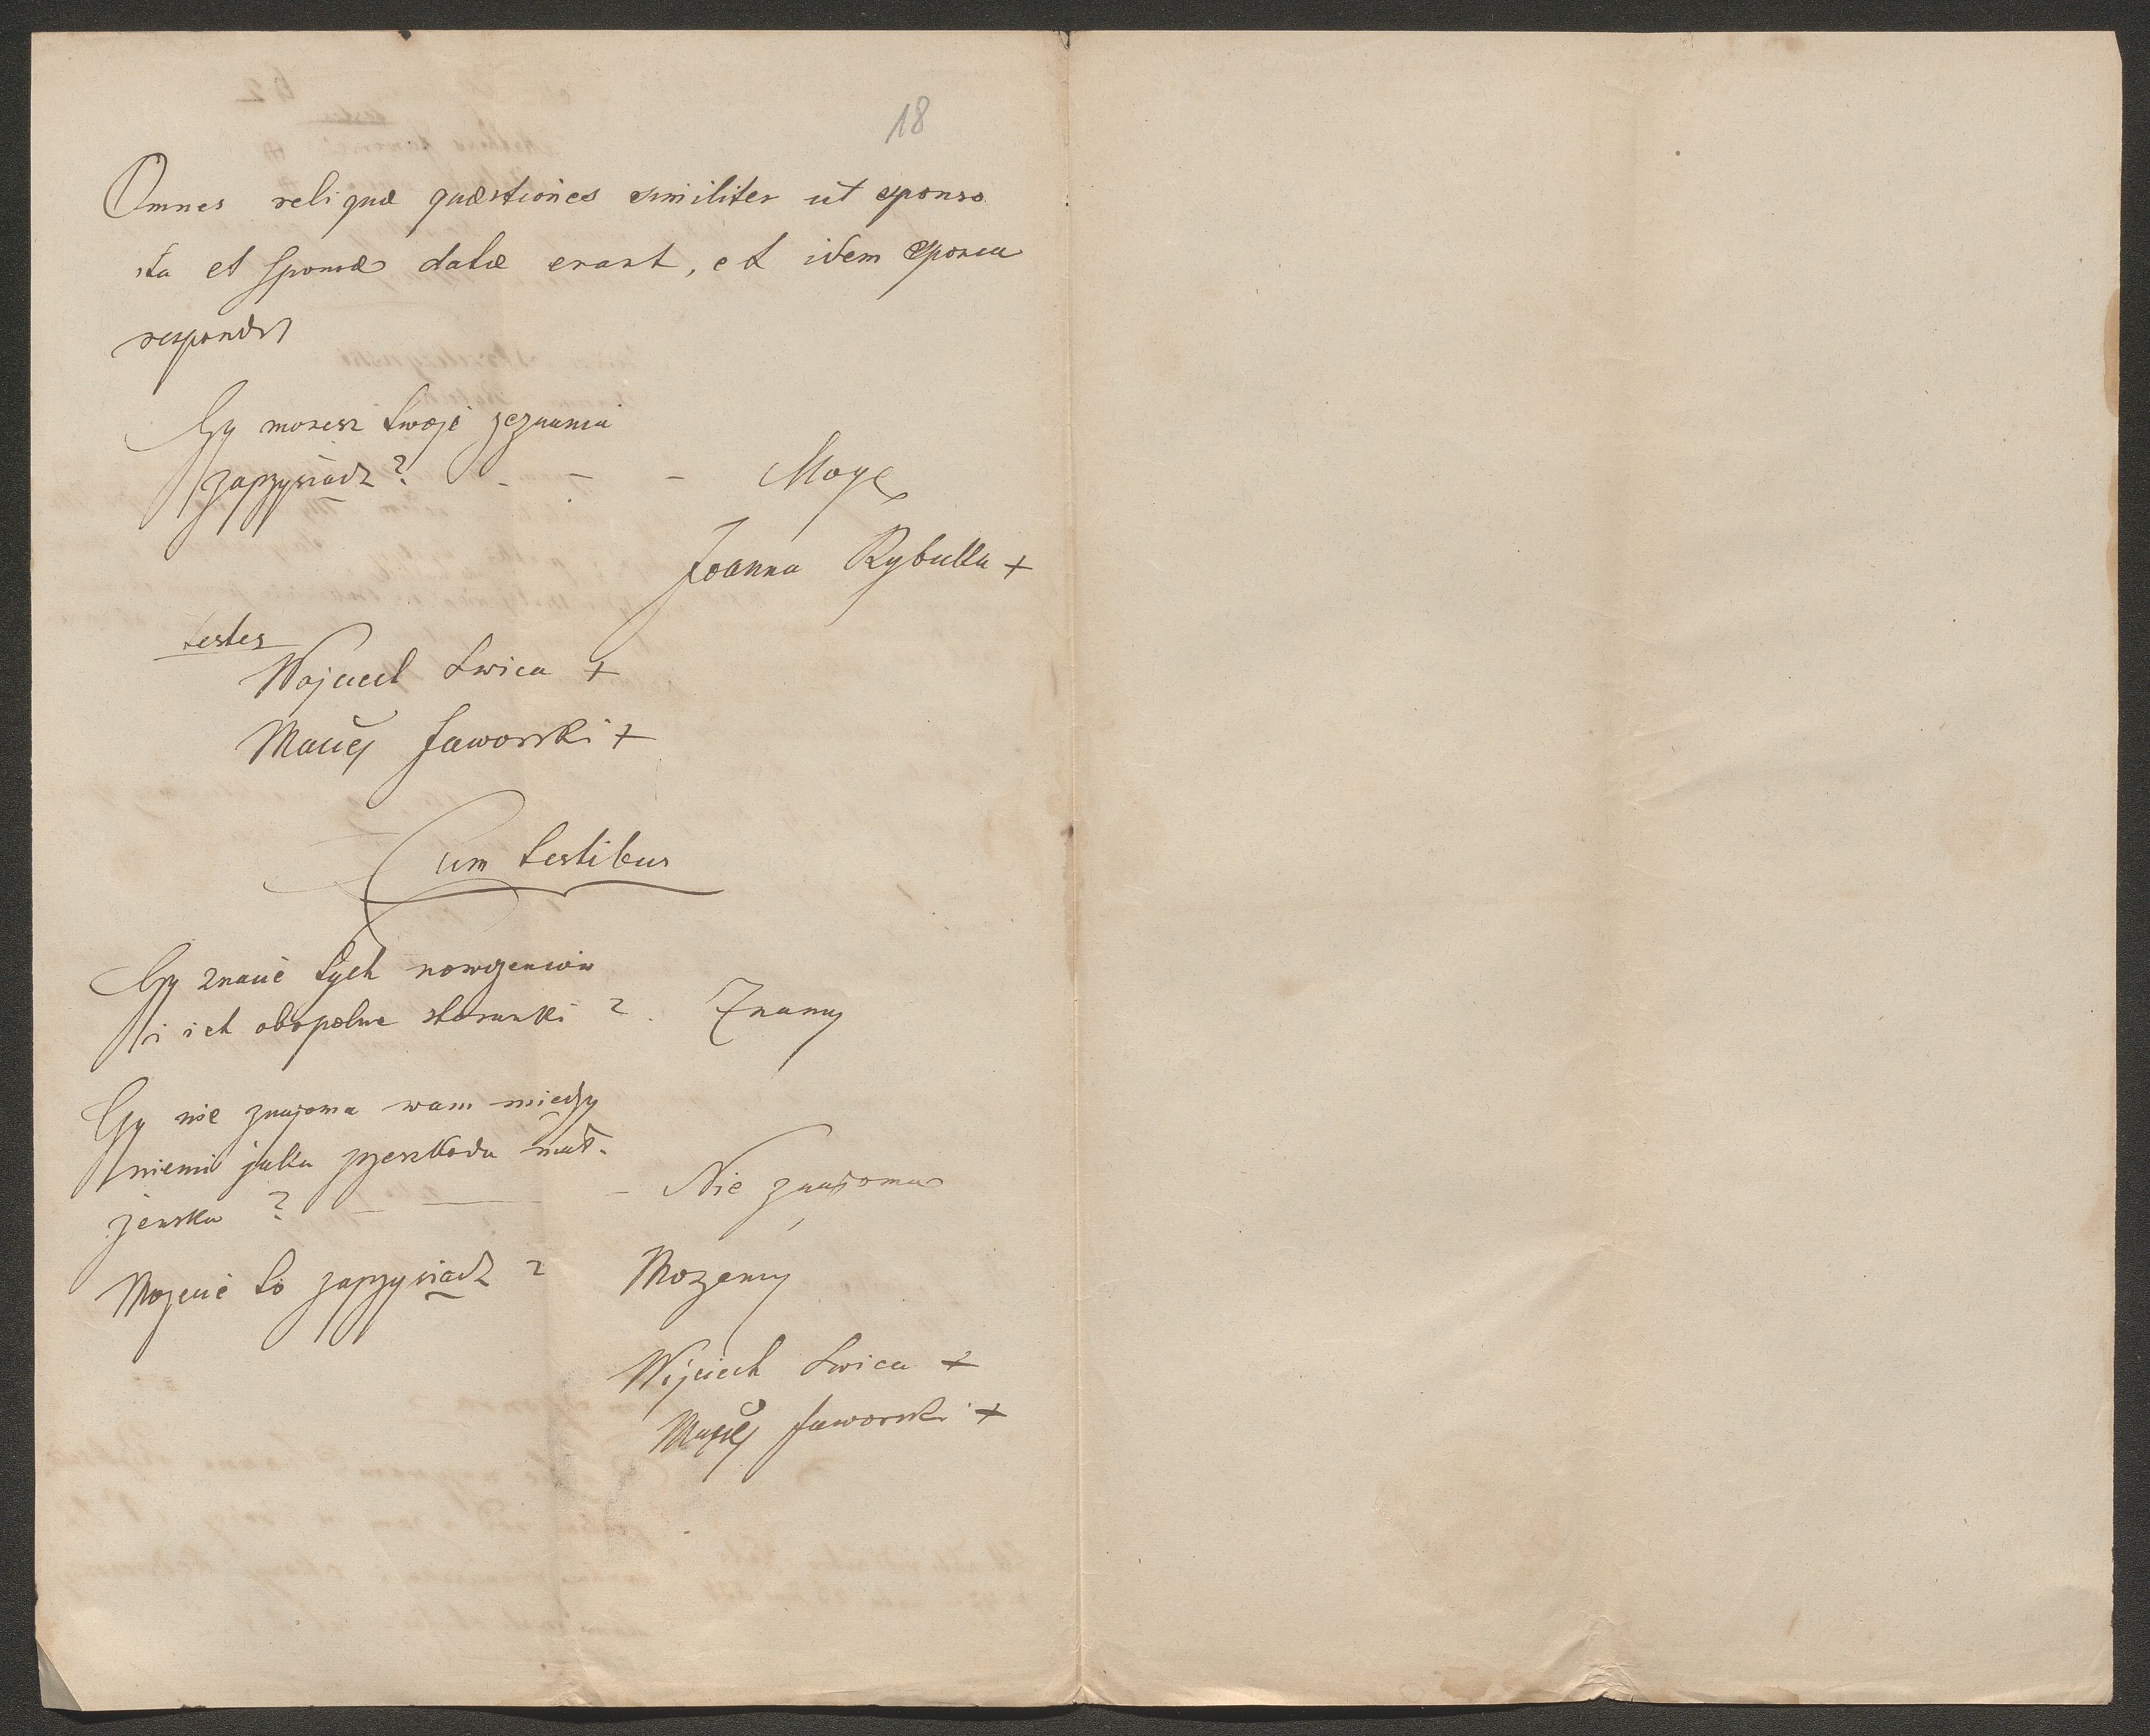 18
Omnes reliquæ quæstiones similiter ut sponso
ita et sponsæ datæ erant, et idem sponsa
respondit
Czy możesz twoje zeznania
zaprzysiądz? - - - Mogę
Joanna Rybutta +
testes
Wojciech Lwica +
Maciej Jaworski +
Cum testibus
Czy znacie tych nowożeńców
i ich obopólne stosunki? Znamy
Czy nie znajoma wam między
niemi jaka przeszkoda mał-
żeńska? - - - Nie znajoma
Możecie to zaprzysiądz? Możemy
Wojciech Lwica +
Maciej Jaworski +